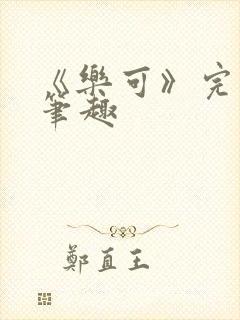 《樂可》完
筆趣
鄭直王